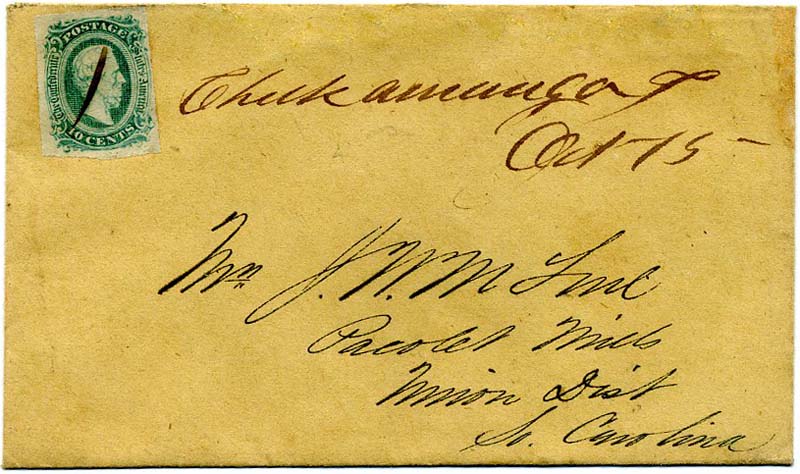 POSTAGE
The Confederate States of America
10 CENTS
Chickamauga
Oct 15
J. W. M
Pacolet Mills
Union Dist
So. Carolina